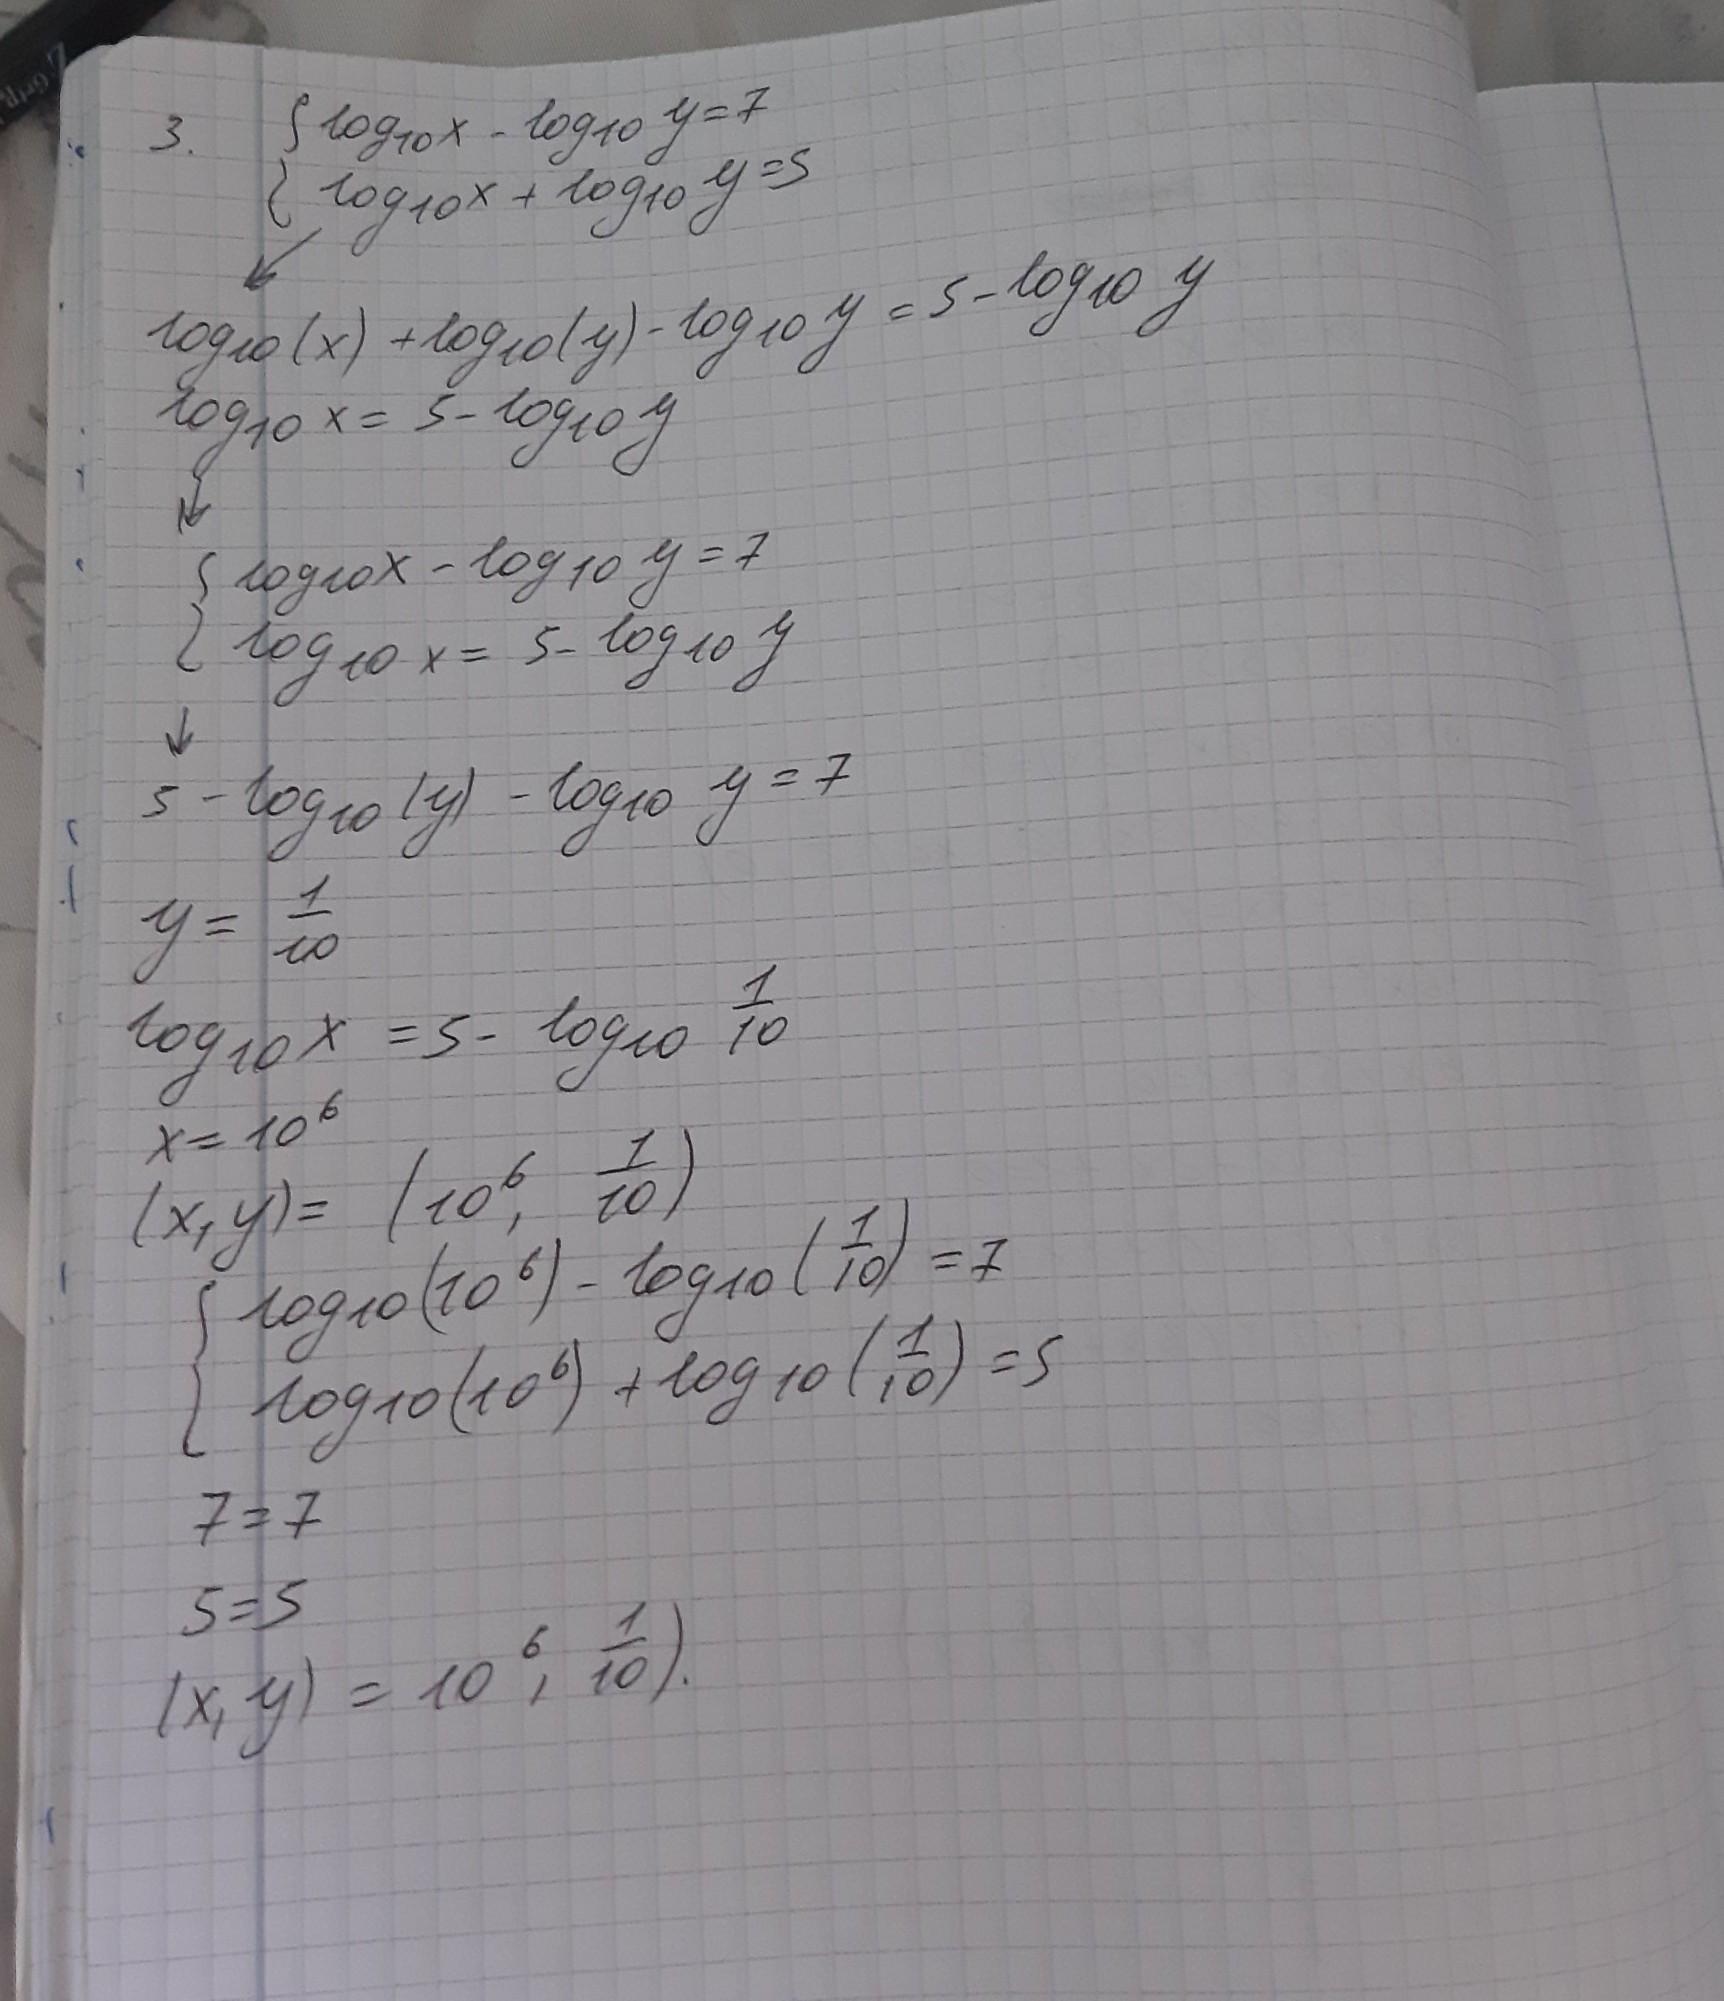 3. { log₁₀x - log₁₀ y = 7
{ log₁₀x + log₁₀ y = 5
log₁₀(x) + log₁₀(y) - log₁₀ y = 5 - log₁₀ y
log₁₀ x = 5 - log₁₀ y
{ log₁₀x - log₁₀ y = 7
{ log₁₀ x = 5 - log₁₀ y
5 - log₁₀ (y) - log₁₀ y = 7
y = 1/10
log₁₀ x = 5 - log₁₀ 1/10
x = 10⁶
(x, y) = (10⁶, 1/10)
{ log₁₀(10⁶) - log₁₀(1/10) = 7
{ log₁₀(10⁶) + log₁₀(1/10) = 5
7 = 7
5 = 5
(x, y) = 10⁶, 1/10).